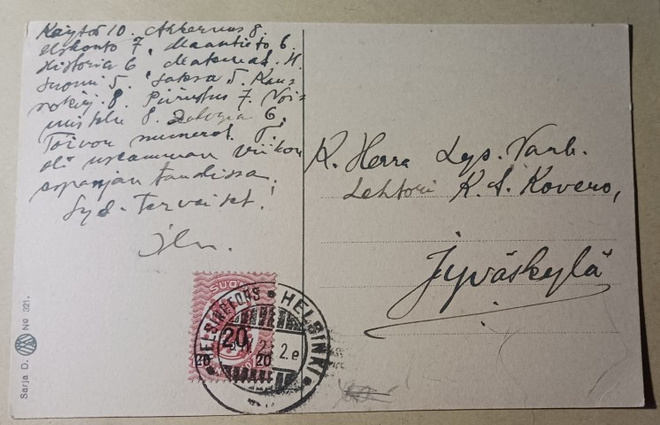 Käytös 10. Ahkeruus 8.
Uskonto 7. Maantieto 6.
Historia 6. Matemat. 4.
Suomi 5. Saksa 5. Kau-
nokirj. 8. Piirustus 7. Voi-
mistelu 8. 6.
Toivon numerot.
oli useamman viikon
Syd. Terveiset!
K. Herra Lys. Vanh.
Lehtori K. S. Kovero,
Jyväskylä
SUO
HELSINGFORS • HELSINKI •
20
20 20
2.e
Sarja D. No 321.